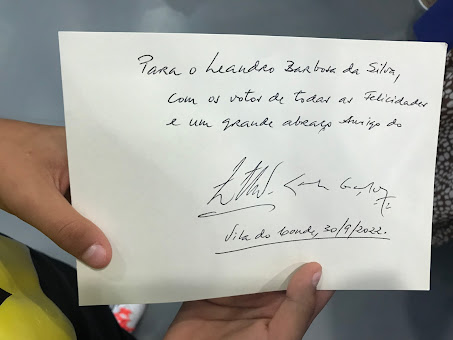 Para o Leandro Barbosa da Silva,
com os votos de todas as Felicidades
e um grande abraço Amigo do
Vila do Conde, 30/9/2022.